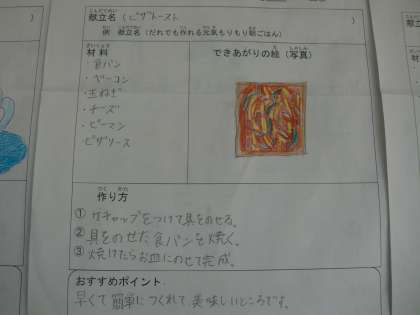 献立名（ピザトースト　）
例 献立名（だれでも作れる元気もりもり朝ごはん）
材料
・食パン
・ベーコン
・玉ねぎ
・チーズ
・ピーマン
ピザソース
できあがりの絵（写真）
作り方
① ケチャップをつけて具をのせる。
② 具をのせた食パンを焼く。
③ 焼けたらお皿にのせて完成。
おすすめポイント
早くて簡単につくれて、美味しいところです。